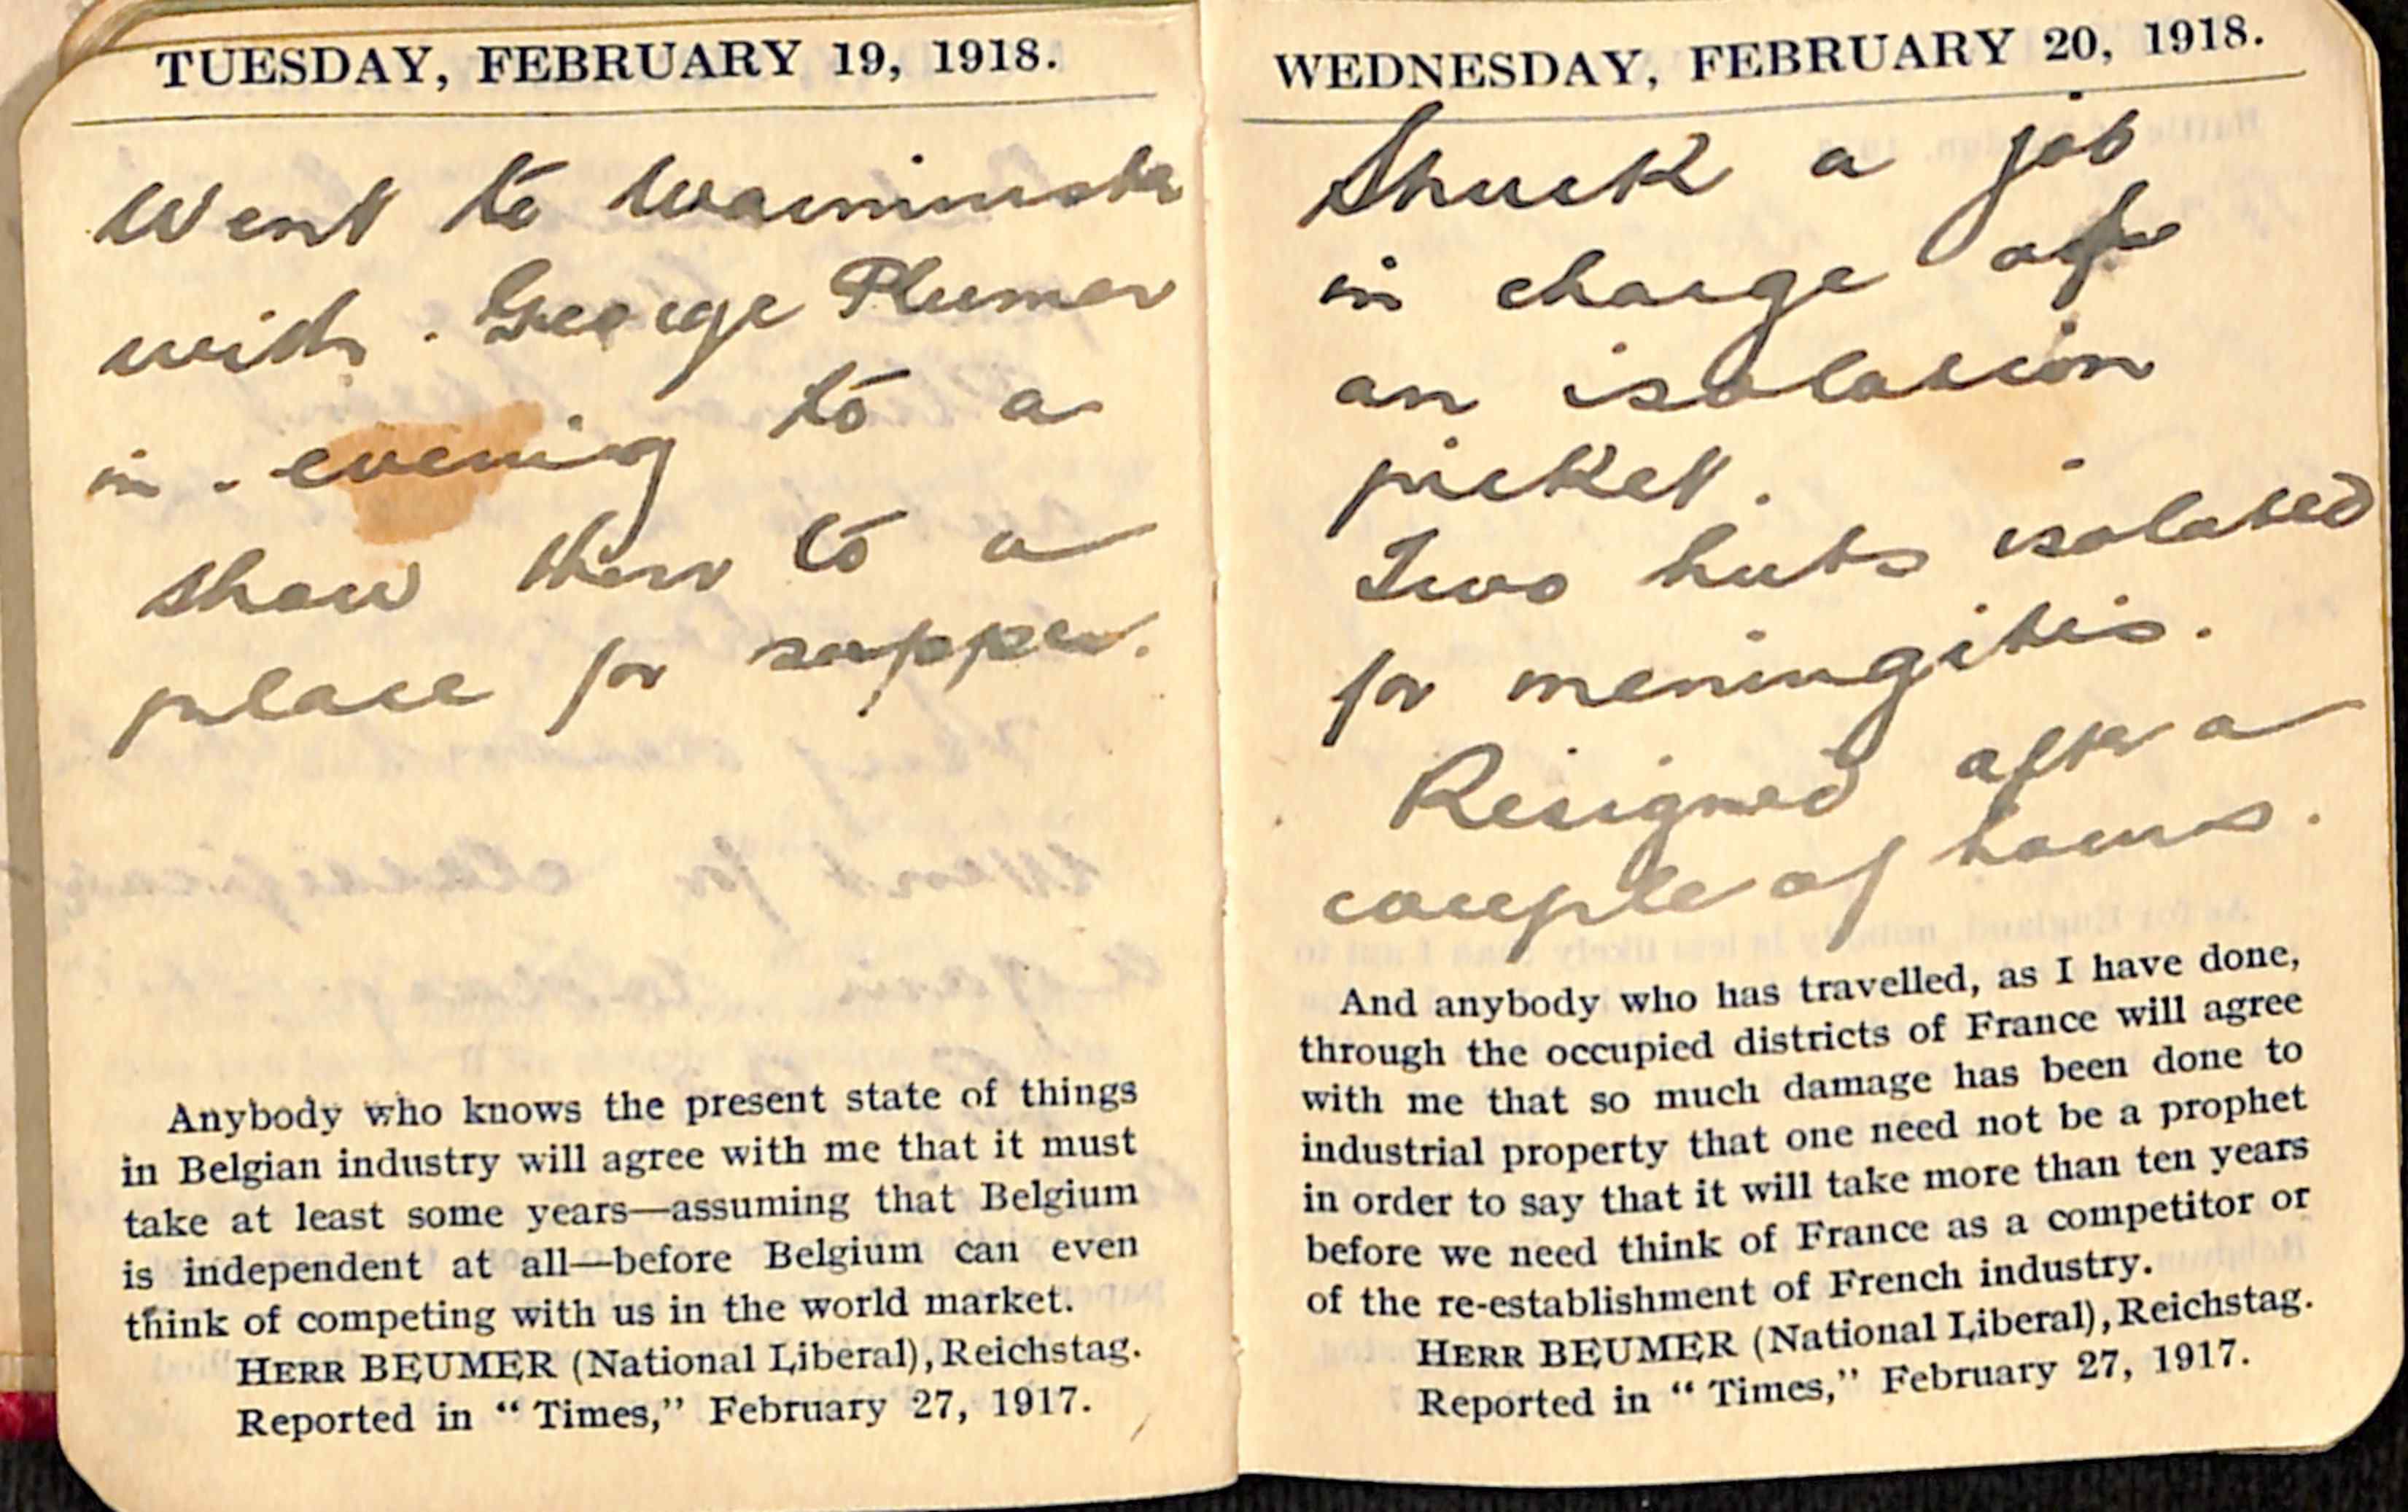 TUESDAY, FEBRUARY 19, 1918.
Went to Warminster
with. George Plumer
in. evening to a
show then to a
place for supper.
Anybody who knows the present state of things
in Belgian industry will agree with me that it must
take at least some years—assuming that Belgium
is independent at all—before Belgium can even
think of competing with us in the world market.
HERR BEUMER (National Liberal), Reichstag.
Reported in “Times,” February 27, 1917.
WEDNESDAY, FEBRUARY 20, 1918.
Struck a job
in charge of
an isolation
picket.
Two huts isolated
for meningitis.
Resigned after a
couple of hours.
And anybody who has travelled, as I have done,
through the occupied districts of France will agree
with me that so much damage has been done to
industrial property that one need not be a prophet
in order to say that it will take more than ten years
before we need think of France as a competitor or
of the re-establishment of French industry.
HERR BEUMER (National Liberal), Reichstag.
Reported in “Times,” February 27, 1917.